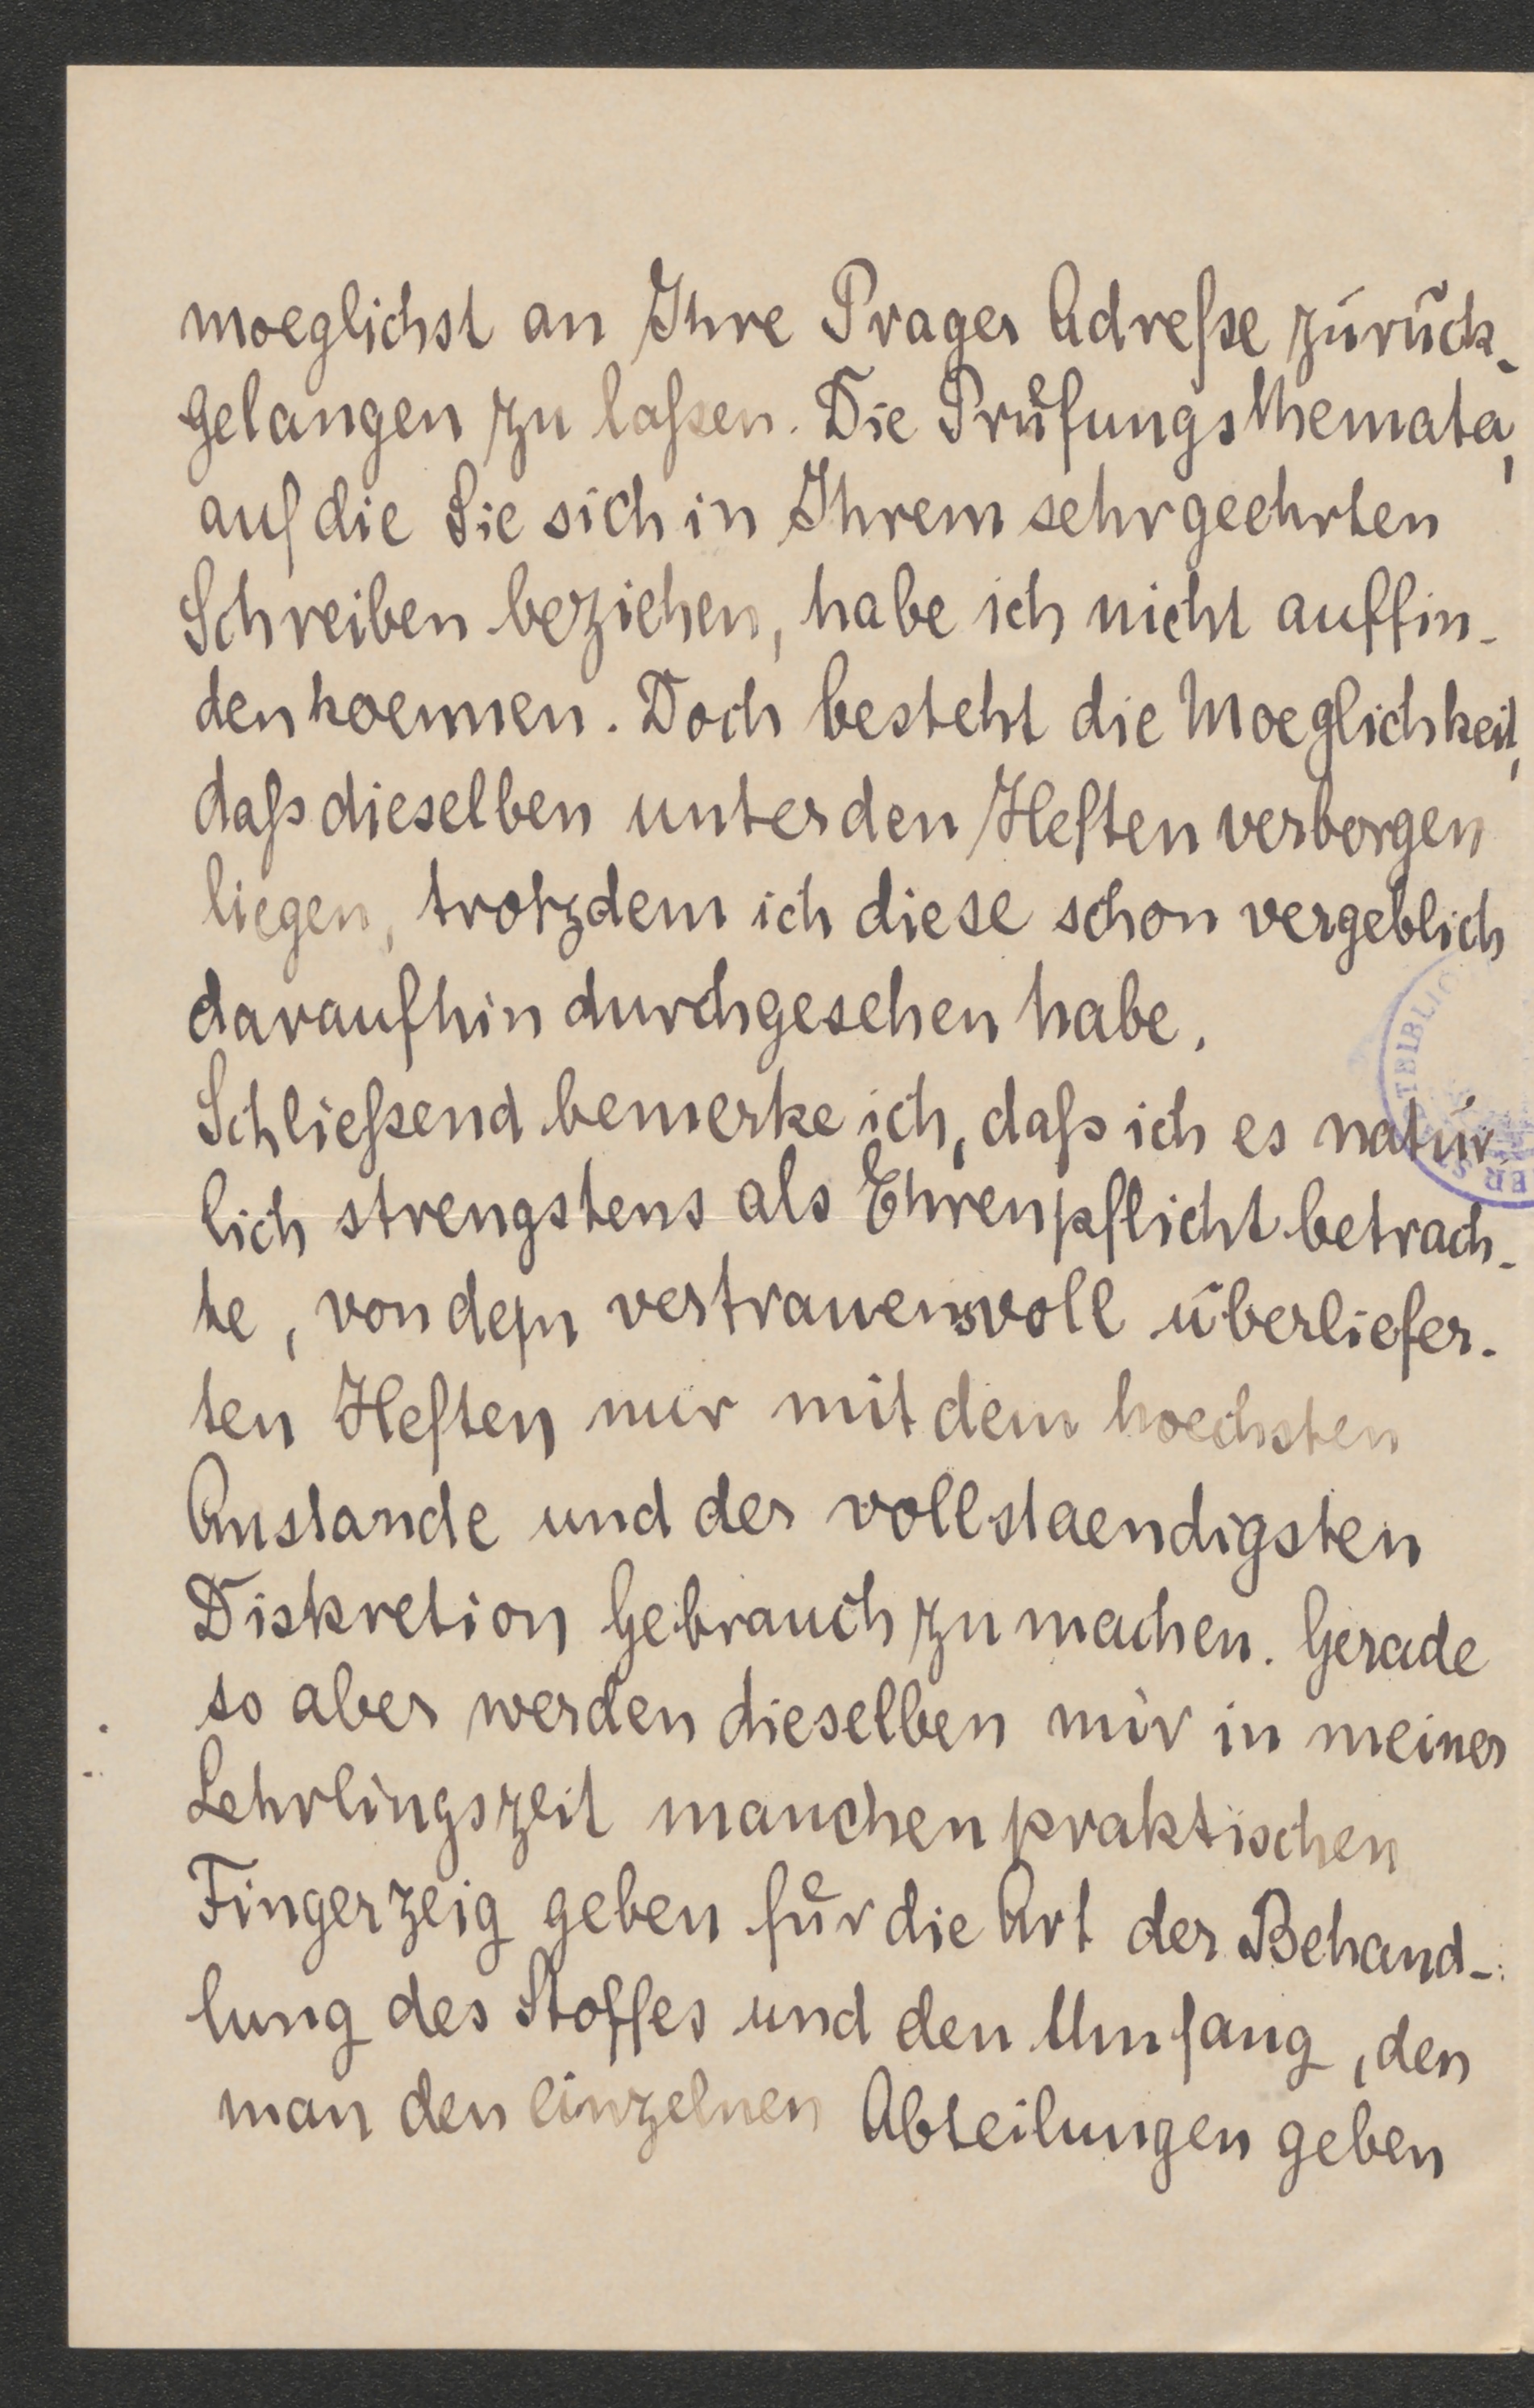 moeglichst an Ihre Prager Adresse zurück-
gelangen zu lassen. Die Prüfungsthemata,
auf die Sie sich in Ihrem sehr geehrten
Schreiben beziehen, habe ich nicht auffin-
den koennen. Doch besteht die Moeglichkeit,
dass dieselben unter den Heften verborgen
liegen, trotzdem ich diese schon vergeblich
daraufhin durchgesehen habe.
Schliessend bemerke ich, dass ich es natür-
lich strengstens als Ehrenpflicht betrach-
te, von den vertrauensvoll überliefer-
ten Heften nur mit dem hoechsten
Anstande und der vollstaendigsten
Diskretion Gebrauch zu machen. Gerade
so aber werden dieselben mir in meiner
Lehrlingszeit manchen praktischen
Fingerzeig geben für die Art der Behand-
lung des Stoffes und den Umfang, den
man den einzelnen Abteilungen geben